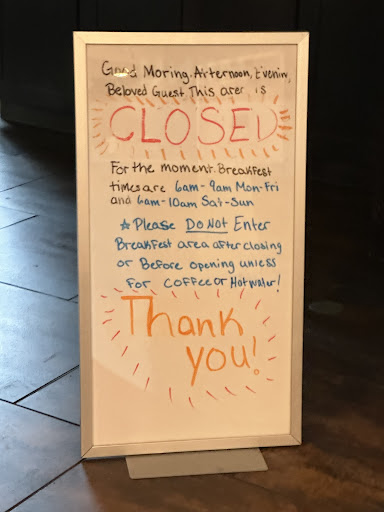 Good Moring, Afternoon, Evenin,
Beloved Guest This arer is
CLOSED
For the moment. Breakfest
times are 6am-9am Mon-Fri
and 6am-10am Sat-Sun
☆ Please DO NOT Enter
Breakfest area after closing
or Before opening unless
for coffee or Hot water!
Thank
you!